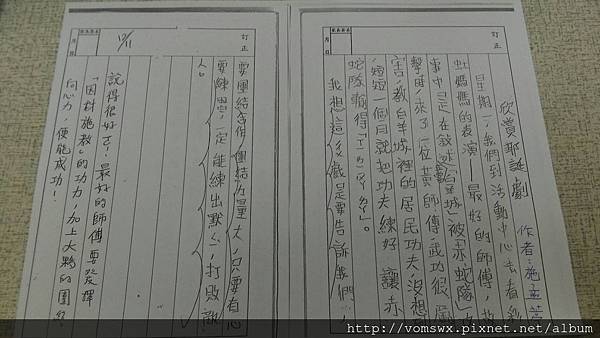 欣賞耶誕劇
作者:施孟
星期一,我們到活動中心去看彩
虹媽媽的表演—最好的師傅,故
事中是在敘述「白羊城」被「赤蛇隊」攻
擊時,來了一位黃師傅,武功很厲
害,教白羊城裡的居民功夫,沒想到
短短一個月就把功夫練好,讓赤
蛇隊輸得「ㄒㄧㄅㄚㄌㄢˋ」。
我想這段戲是要告訴我們:
訂正
月 日
要團結合作,團結力量大,只要有心
要練習,一定能練出默契,打敗敵
人。
說得很好ㄛ!最好的師傅要發揮
「因材施教」的功力,加上大夥的團結
向心力,便能成功!
12/11
訂正
月 日
http://vomswx.pixnet.net/album